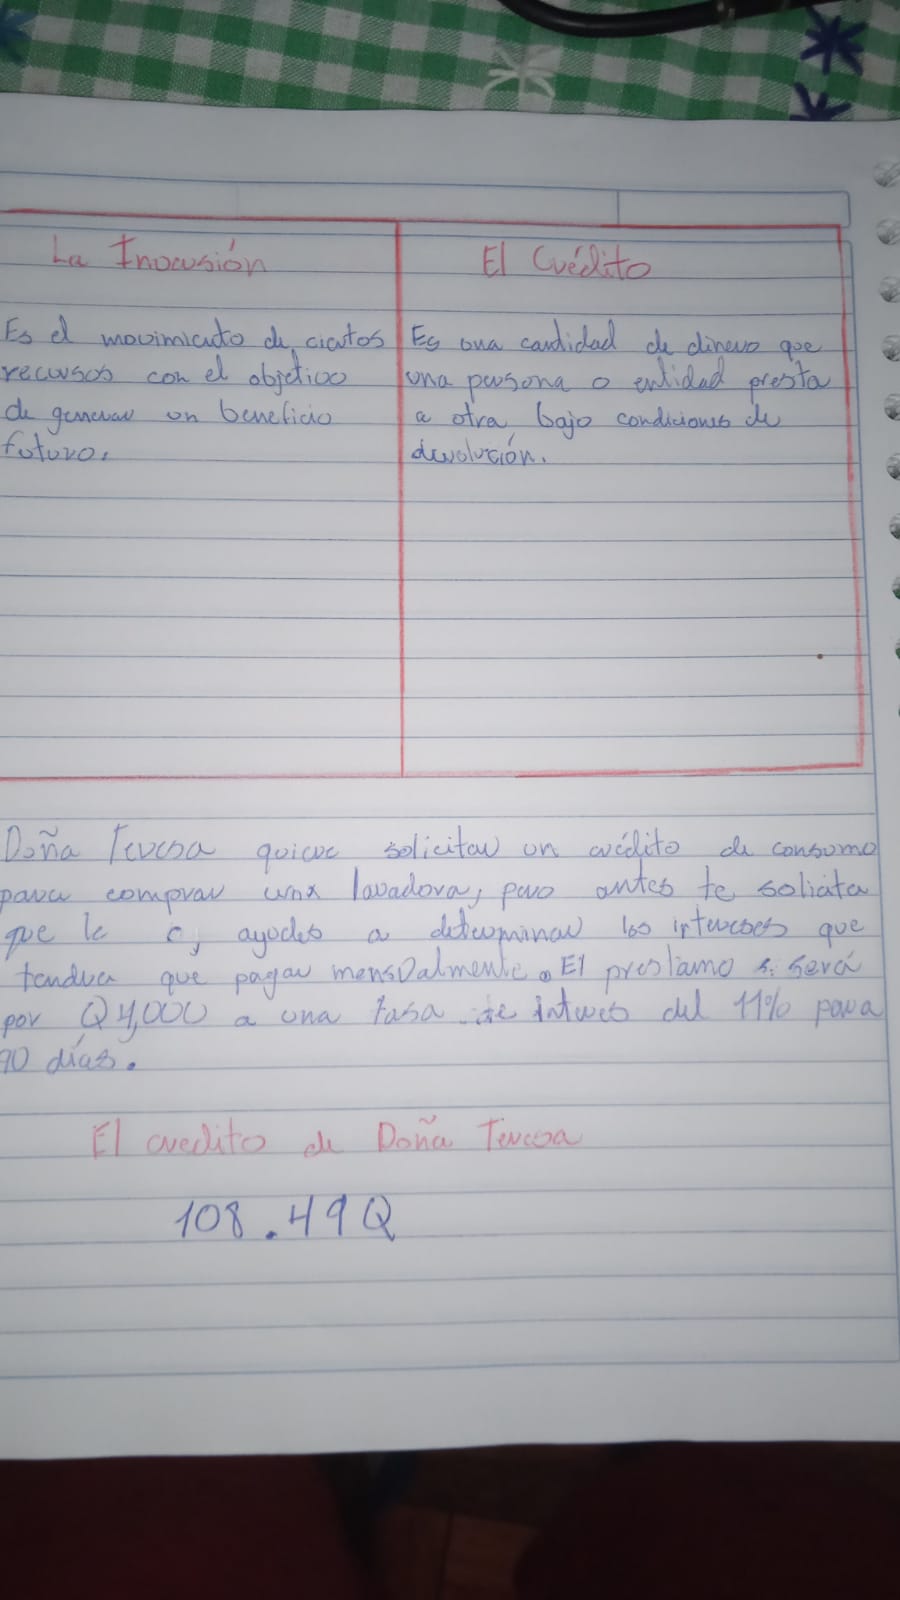 La Inversión
Es el movimiento de ciertos
recursos con el objetivo
de generar un beneficio
futuro.
El Crédito
Es una cantidad de dinero que
una persona o entidad presta
a otra bajo condiciones de
devolución.
Doña Teresa quiere solicitar un crédito de consumo
para comprar una lavadora, pero antes te solicita
que le ayudes a determinar los intereses que
tendra que pagar mensualmente. El prestamo será
por Q4,000 a una tasa de interes del 11% para
90 días.
El credito de Doña Teresa
108.49Q